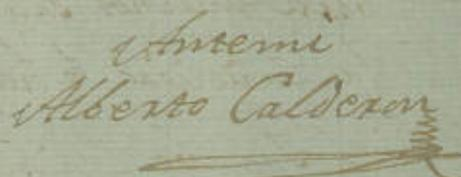 Antemi
Alberto Calderon